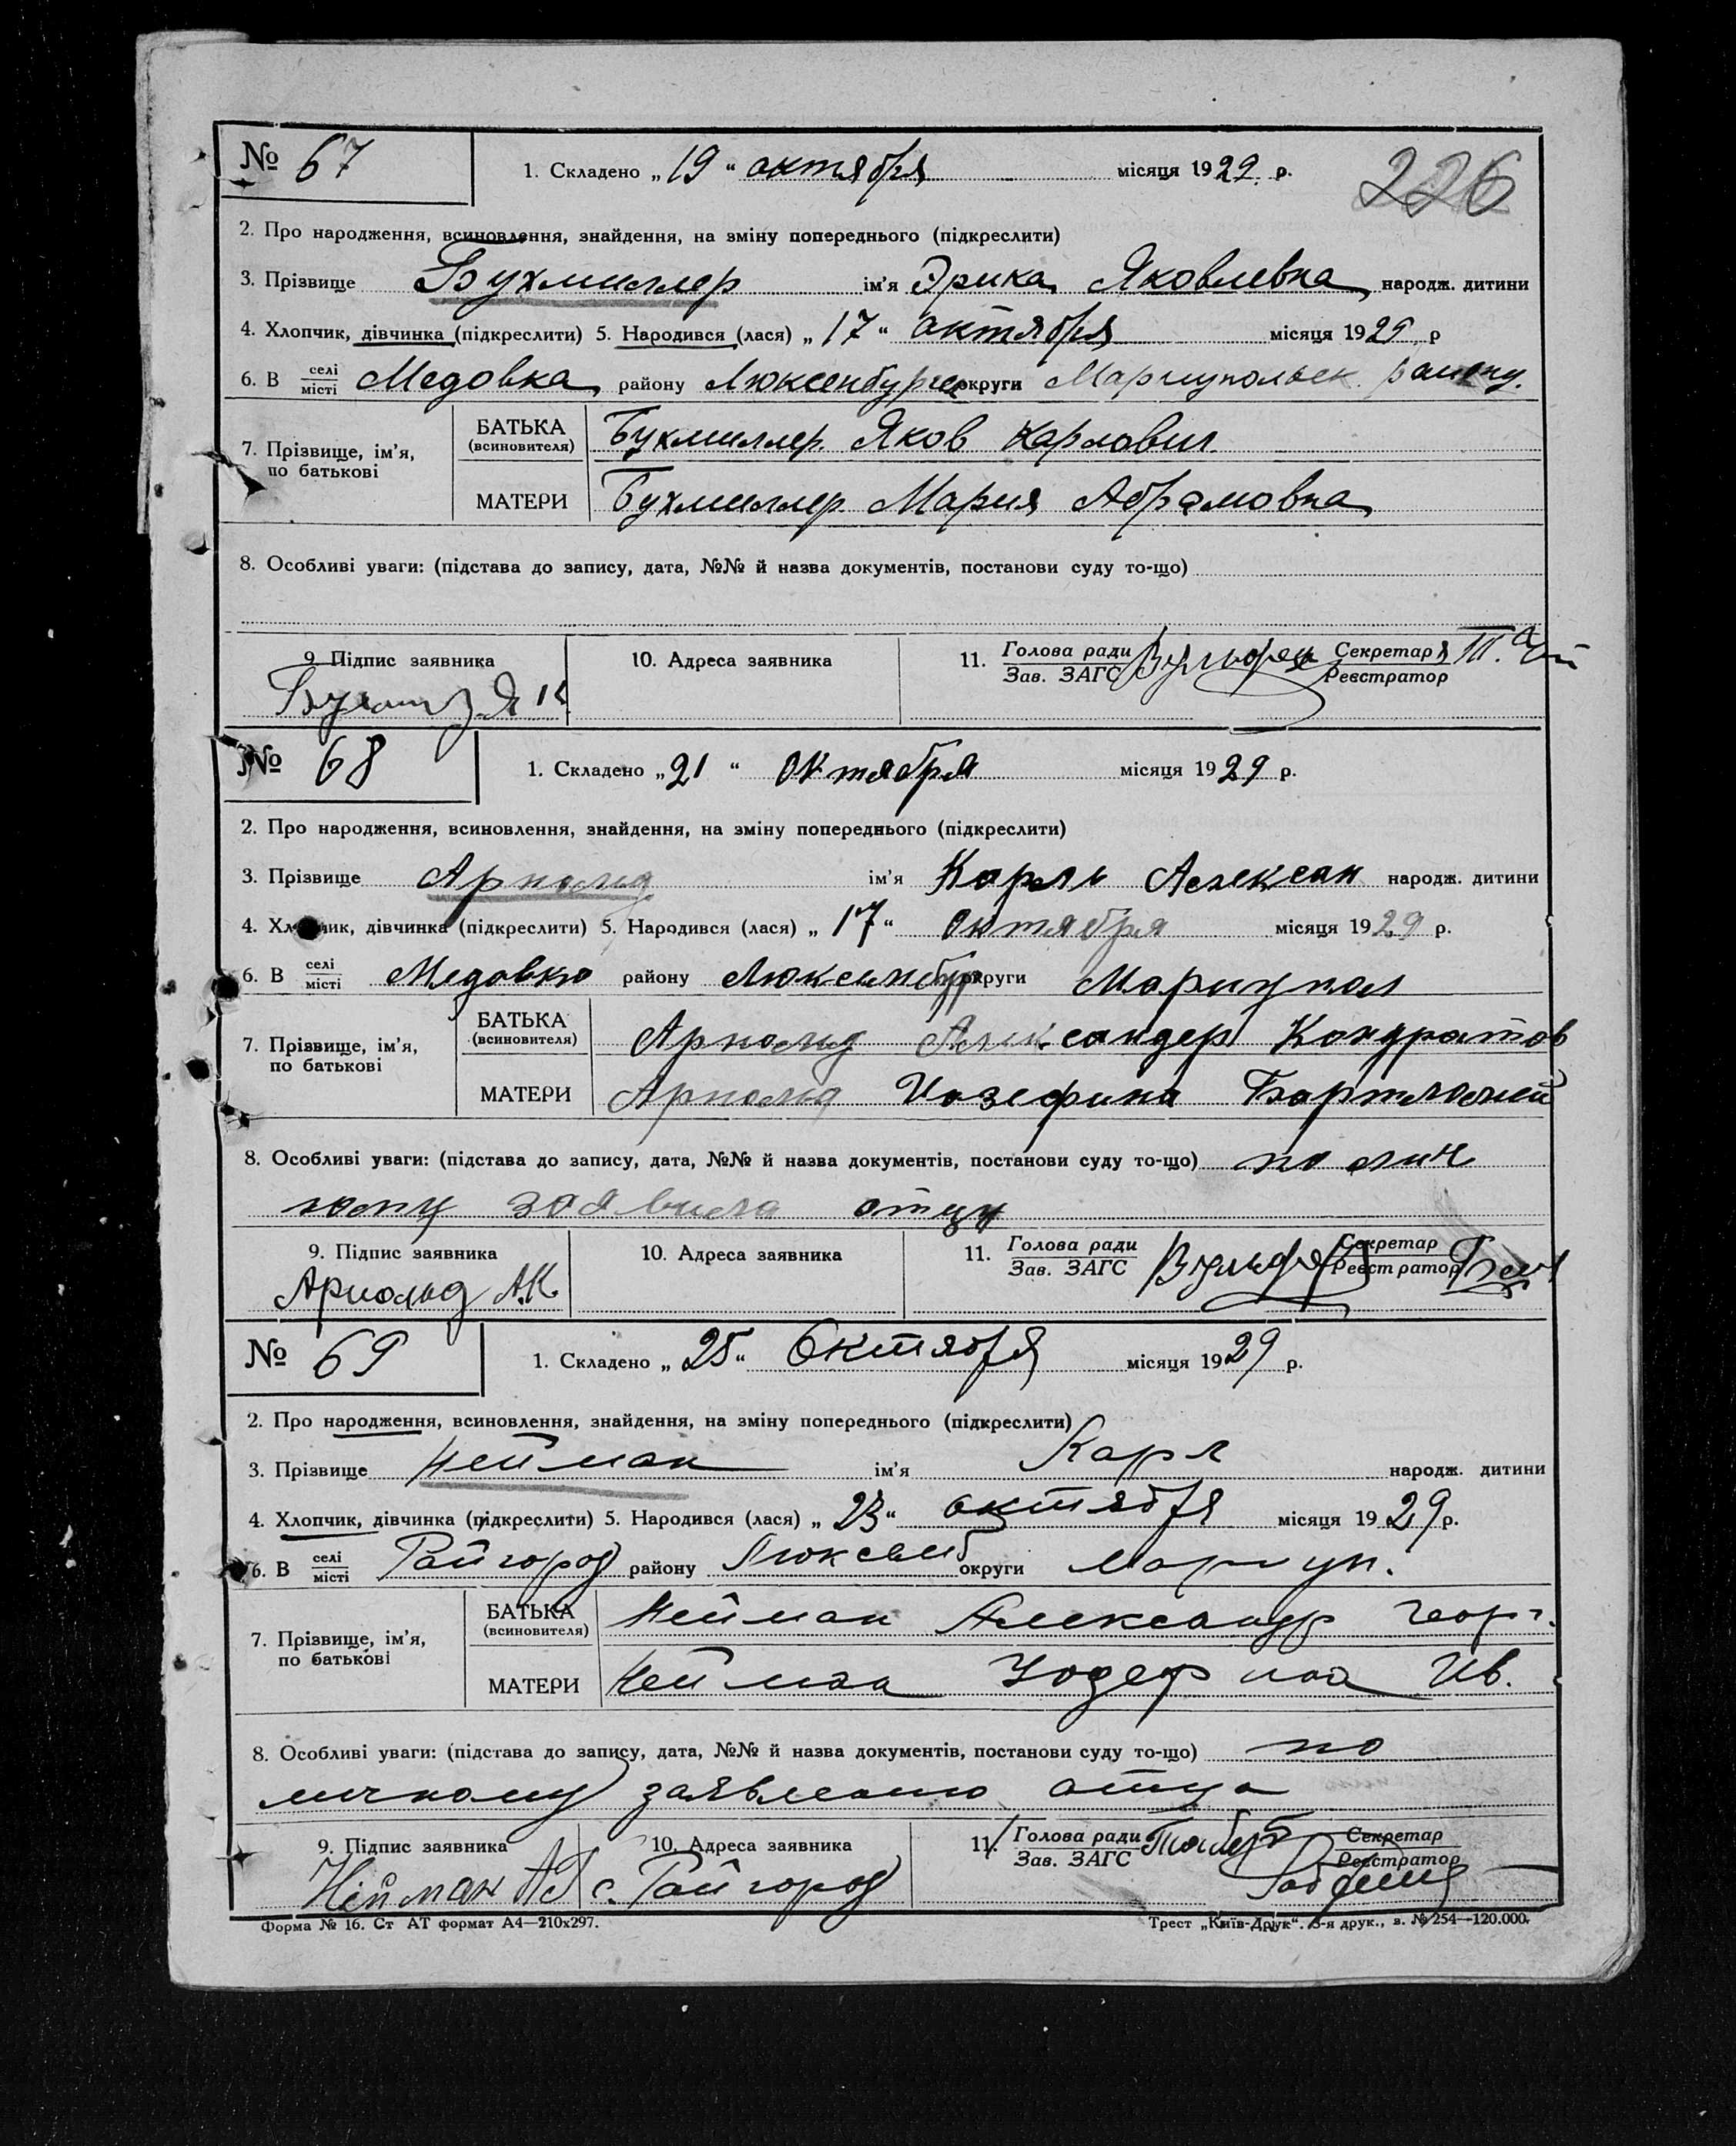 № 67 1. Складено „19“ октября місяця 1929. р. 226
2. Про народження, всиновлення, знайдення, на зміну попереднього (підкреслити)
3. Прізвище Бухмиллер ім'я Эрика Яковлевна народж. дитини
4. Хлопчик, дівчинка (підкреслити) 5. Народився (лася) „17“ октября місяця 1929 р
6. В селі/місті Медовка району Люксенбургс округи Мариупольск.
7. Прізвище, ім'я, по батькові
БАТЬКА (всиновителя) Бухмиллер Яков Карлович.
МАТЕРИ Бухмиллер Мария Абрамовна
8. Особливі уваги: (підстава до запису, дата, №№ й назва документів, постанови суду то-що)
9. Підпис заявника 10. Адреса заявника 11. Голова ради/Зав. ЗАГС Секретар/Реєстратор
Я К
№ 68 1. Складено „21“ Октября місяця 1929 р.
2. Про народження, всиновлення, знайдення, на зміну попереднього (підкреслити)
3. Прізвище Арнольд ім'я Карль Алексан народж. дитини
4. Хлопчик, дівчинка (підкреслити) 5. Народився (лася) „17“ Октября місяця 1929 р.
6. В селі/місті Медовка району Люксембур округи Мариупол
7. Прізвище, ім'я, по батькові
БАТЬКА (всиновителя) Арнольд Александер Кондратов
МАТЕРИ Арнольд Иозефина
8. Особливі уваги: (підстава до запису, дата, №№ й назва документів, постанови суду то-що) по лич
ному отцу
9. Підпис заявника 10. Адреса заявника 11. Голова ради/Зав. ЗАГС Секретар/Реєстратор
Арнольд А.К.
№ 69 1. Складено „25“ Октября місяця 1929 р.
2. Про народження, всиновлення, знайдення, на зміну попереднього (підкреслити)
3. Прізвище Нейман ім'я Карл народж. дитини
4. Хлопчик, дівчинка (підкреслити) 5. Народився (лася) „23“ октября місяця 1929 р.
6. В селі/місті Райгород району Люксемб округи Мариуп.
7. Прізвище, ім'я, по батькові
БАТЬКА (всиновителя) Нейман Александр Георг.
МАТЕРИ Нейман Ив.
8. Особливі уваги: (підстава до запису, дата, №№ й назва документів, постанови суду то-що) по
личному заявлению отца
9. Підпис заявника 10. Адреса заявника 11. Голова ради/Зав. ЗАГС Секретар/Реєстратор
Нейман АГ с. Райгород
Форма № 16. Ст АТ формат А4—210х297. Трест „Київ-Друк“. 3-я друк., з. № 254—120.000.